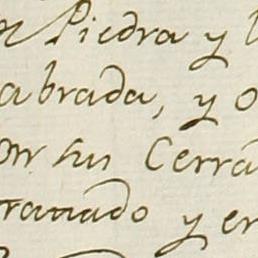 n Piedra y l
abrada, y o
on sus Cerra
ravado y en